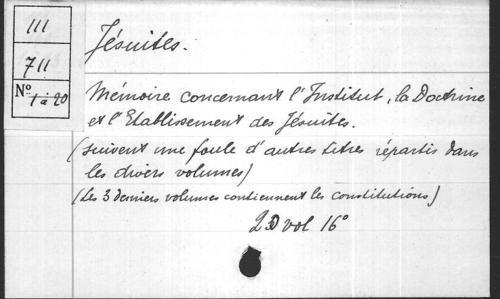 III
711
No 1 à 20
Jésuites.
Mémoire concernant l'Institut, la Doctrine
et l'Etablissement des Jésuites.
(suivent une foule d'autres titres répartis dans
les divers volumes)
(Les 3 derniers volumes contiennent les constitutions)
20 vol 16°